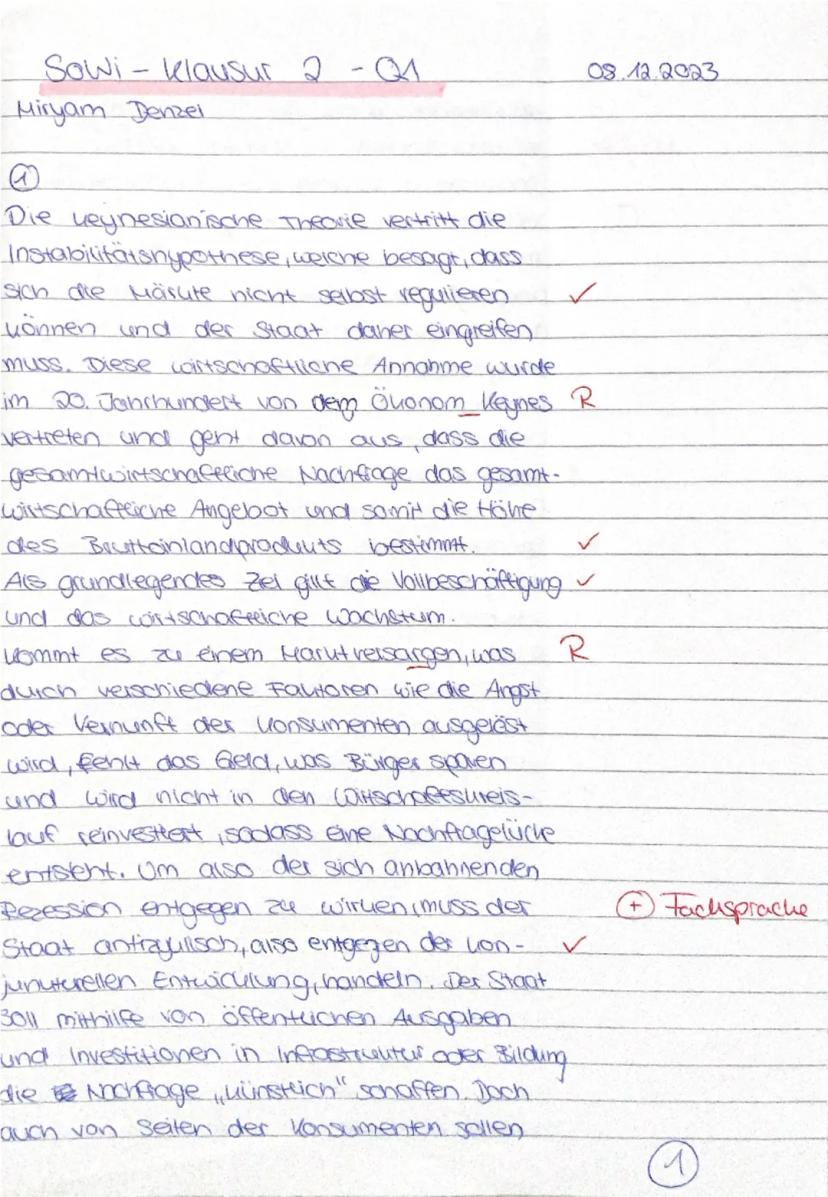 SoWi - Klausur 2 - Q1 08.12.2023
Miryam Denzel
1
Die keynesianische Theorie vertritt die
Instabilitätshypothese, welche besagt, dass
sich die Märkte nicht selbst regulieren ✓
können und der Staat daher eingreifen
muss. Diese wirtschaftliche Annahme wurde
im 20. Jahrhundert von dem Ökonom Keynes R
vertreten und geht davon aus, dass die
gesamtwirtschaftliche Nachfrage das gesamt-
wirtschaftliche Angebot und somit die Höhe
des Bruttoinlandprodukts bestimmt. ✓
Als grundlegendes Ziel gilt die Vollbeschäftigung ✓
und das wirtschaftliche Wachstum.
Kommt es zu einem Marktversargen, was R
durch verschiedene Faktoren wie die Angst
oder Vernunft der Konsumenten ausgelöst
wird, fehlt das Geld, was Bürger sparen
und wird nicht in den Wirtschaftskreis-
lauf reinvestiert, sodass eine Nachfragelücke
entsteht. Um also der sich anbahnenden
Rezession entgegen zu wirken, muss der + Fachsprache
Staat antizyklisch, also entgegen der kon- ✓
junkturellen Entwicklung, handeln. Der Staat
soll mithilfe von öffentlichen Ausgaben
und Investitionen in Infrastruktur oder Bildung
die Nachfrage „künstlich" schaffen. Doch
auch von Seiten der Konsumenten sollen
1